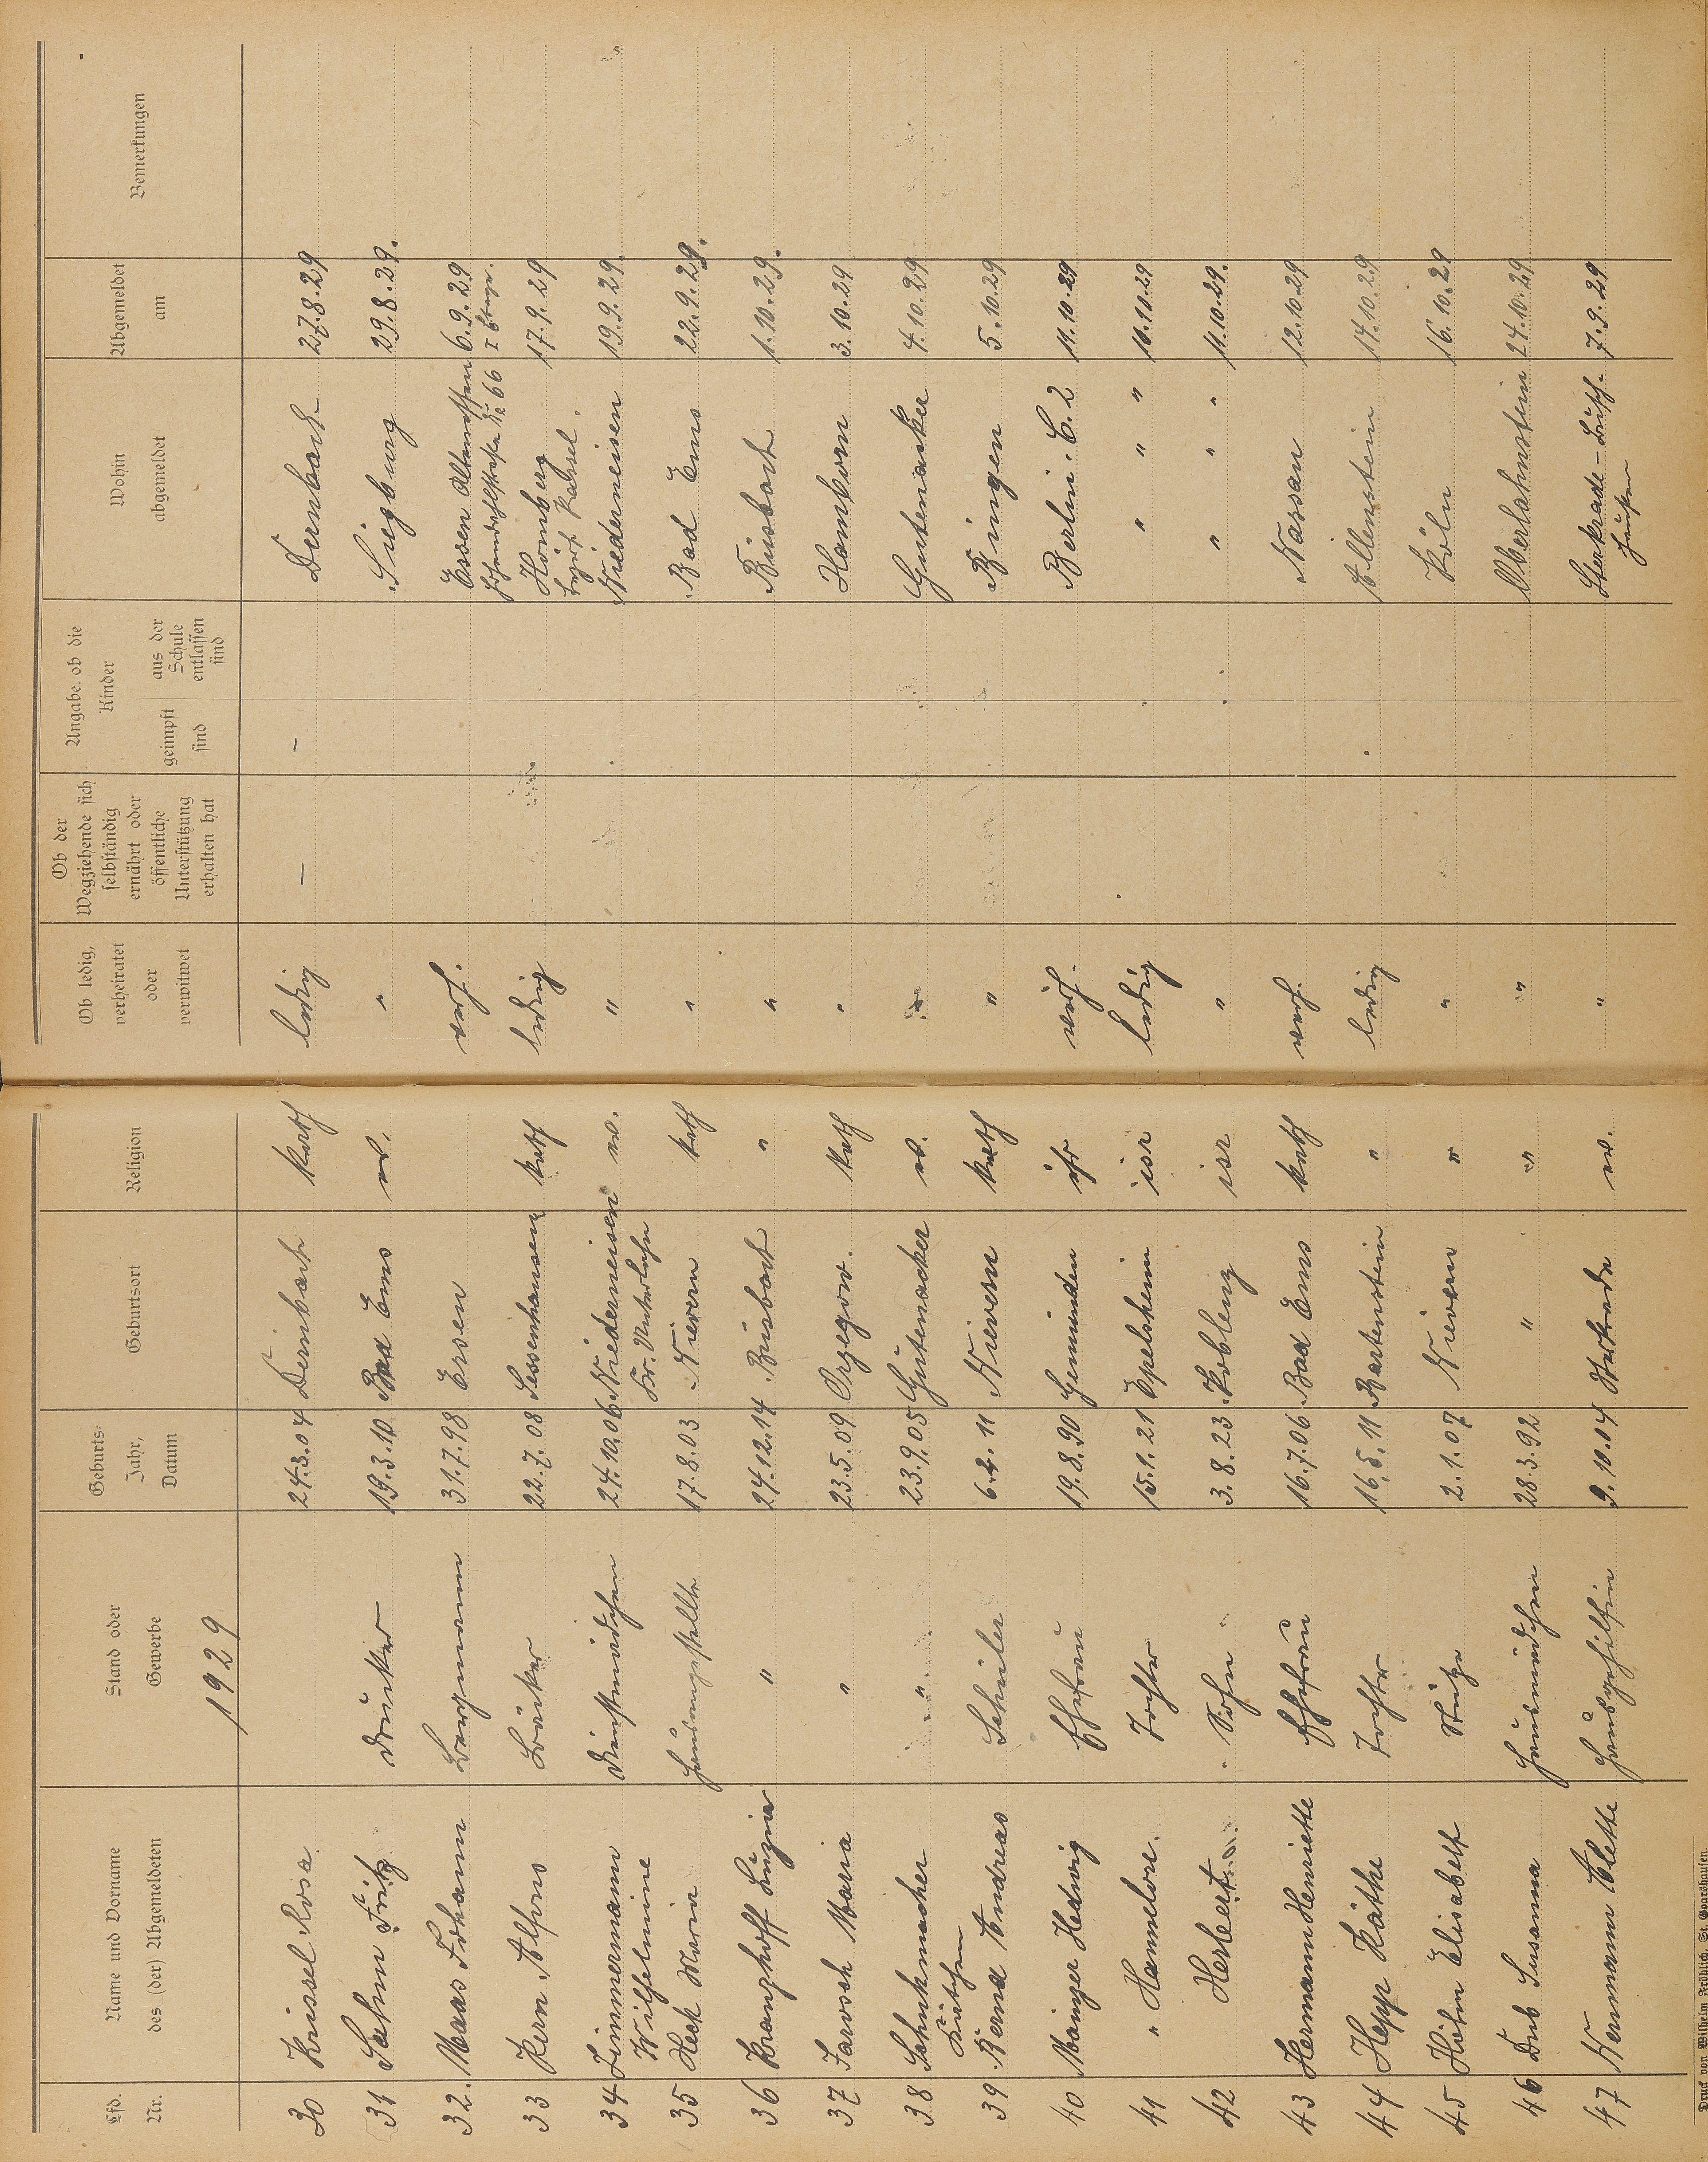 Lfd. Nr. | Name und Vorname des (der) Abgemeldeten | Stand oder Gewerbe | Geburts- Jahr, Datum | Geburtsort | Religion | Ob ledig, verheiratet oder verwitwet | Ob der Wegziehende sich selbständig ernährt oder öffentliche Unterstützung erhalten hat | Angabe, ob die Kinder geimpft sind | aus der Schule entlassen sind | Wohin abgemeldet | Abgemeldet am | Bemerkungen
1929
30 Krissel Rosa 24.3.04 Dernbach kath ledig – – Dernbach 27.8.29
31 Sahm Fritz 19.3.10 Bad Ems ev. " Siegburg 29.8.29.
32. Maas Johann Bergmann 31.7.98 Essen verh. Essen Altenessen 6.9.29
Nr 66
33 Kern Alfons Bäcker 22.7.08 Sessenhausen kath ledig Homberg 17.9.29
Bezirk Kassel.
34 Zimmermann Dienstmädchen 24.10.06 Niederneisen ev. " Niederneisen 19.9.29.
Wilhelmine Kr. Unterlahn
35 Heck Maria Hausangestellte 17.8.03 Nievern kath " Bad Ems 22.9.29.
36 Kramphoff Luzia " 24.12.14 Büsbach " " Büsbach 1.10.29.
37 Jarosch Maria " 23.5.09 Orzegow. kath " Hamborn 3.10.29
38 Schuhmacher " 23.9.05 Gutenacker ev. " Gutenacker 4.10.29
39 Bernd Andreas Schüler 6.2.11 Nievern kath " Bingen 5.10.29
40 Mainzer Hedwig Ehefrau 19.8.90 Gemünden isr verh. Berlin. C. 2 11.10.29
41 " Hannelore. Tochter 15.1.21 isr ledig " " " 11.10.29
42 Herbert Sohn 3.8.23 Koblenz isr " " " " 11.10.29.
43 Hermann Henriette Ehefrau 16.7.06 Bad Ems kath verh. Nassau 12.10.29
44 Hepp Käthe Tochter 16.5.11 Bartenstein " ledig Allenstein 14.10.29
45 Höhn Elisabeth Stütze 2.1.07 Nievern " " Köln 16.10.29
46 Dub Susanna Hausmädchen 28.3.92 " " " Oberlahnstein 24.10.29
47 Neumann Alette Hausgehilfin 9.10.04 Sterkrade ev. " Sterkrade- 7.9.29
Druck von Wilhelm Fröhlich, St. Goarshausen.